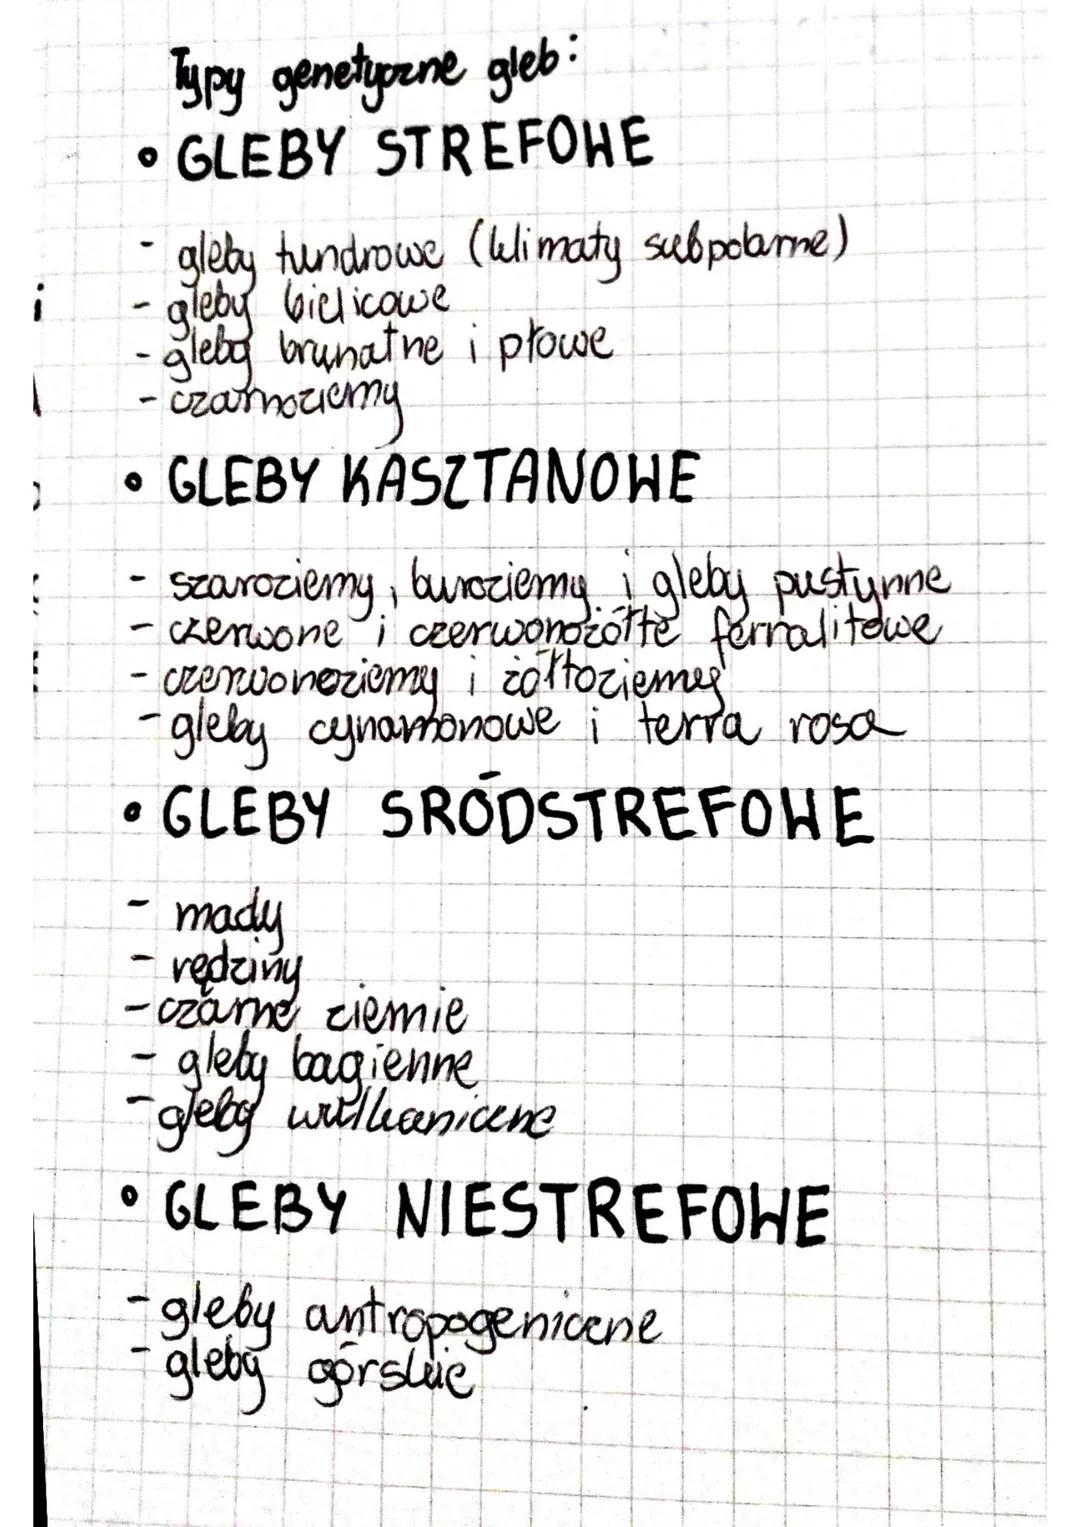 Typy genetyczne gleb:
• GLEBY STREFOWE
- gleby tundrowe (klimaty subpolarne)
- gleby bielicowe
- gleby brunatne i płowe
- czarnoziemy
• GLEBY KASZTANOWE
- szaroziemy, buroziemy i gleby pustynne
- czerwone i czerwonożółte ferralitowe
- czerwonoziemy i żółtoziemy
- gleby cynamonowe i terra rosa
• GLEBY SRÓDSTREFOWE
- mady
- rędziny
- czarne ziemie
- gleby bagienne
- gleby wulkaniczne
• GLEBY NIESTREFOWE
- gleby antropogeniczne
- gleby górskie